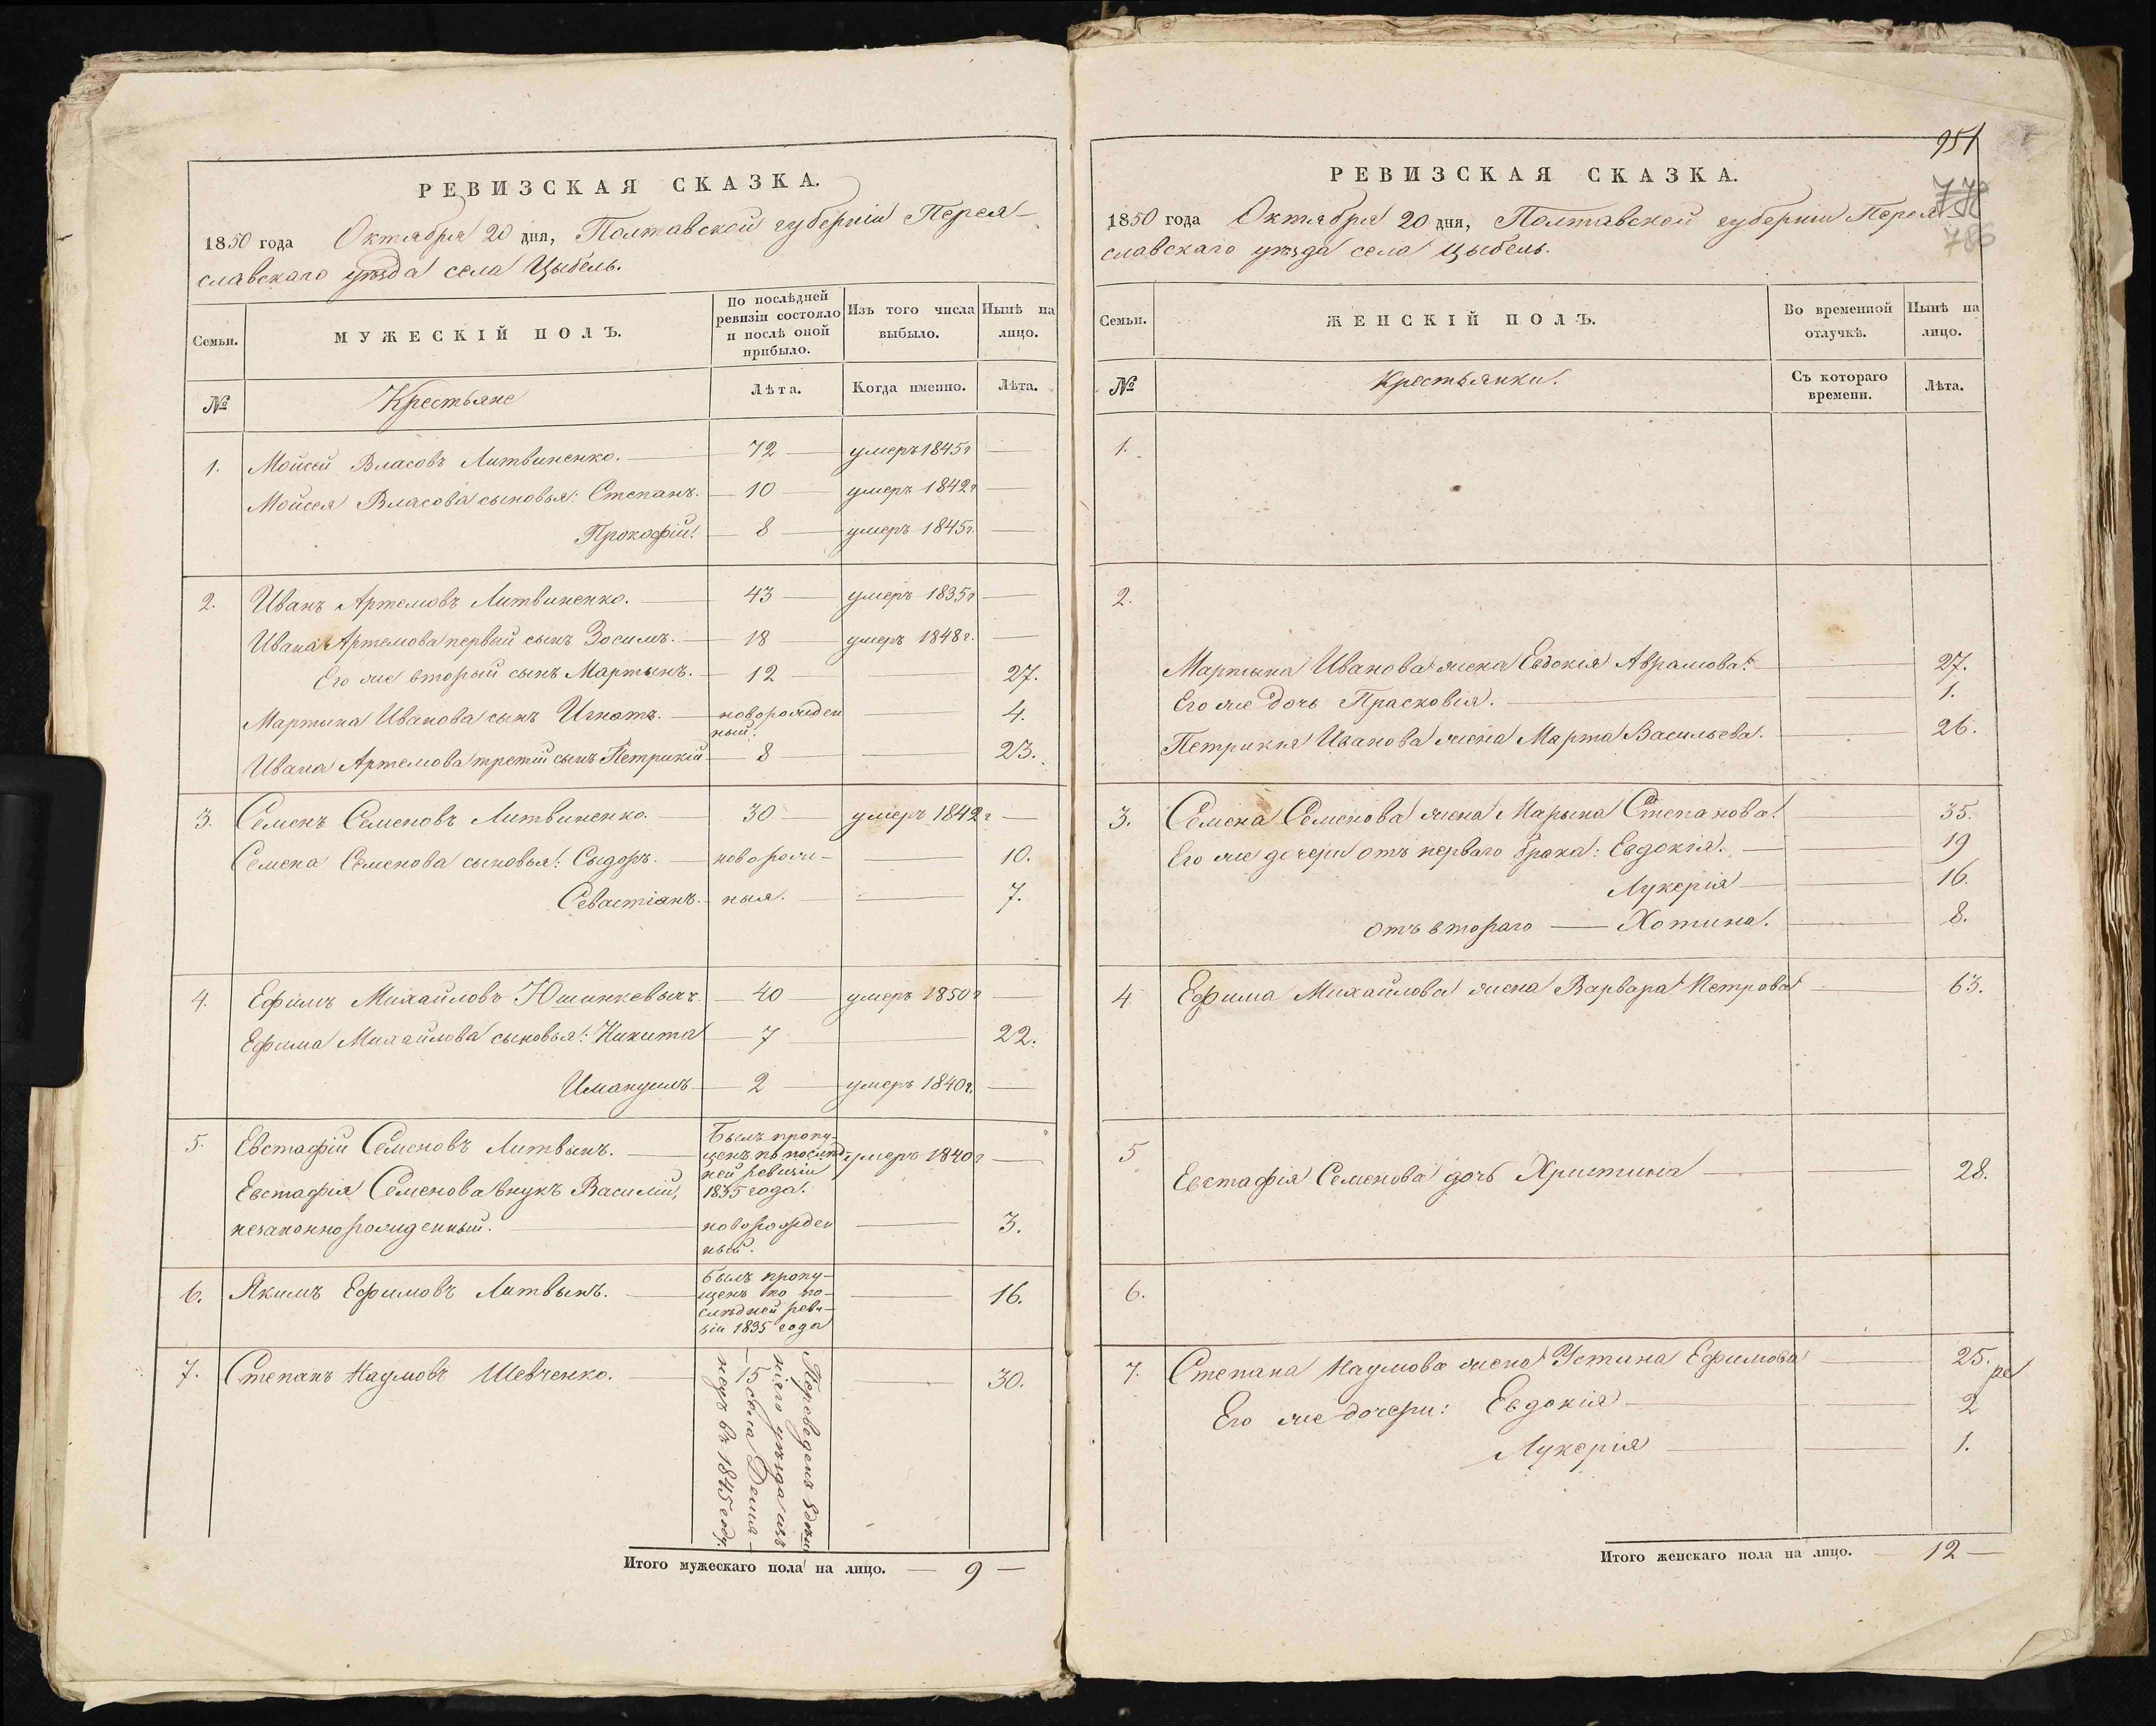 РЕВИЗСКАЯ СКАЗКА.
1850 года Октября 20 дня, Полтавской губерніи Перея-
славскаго уѣзда села Цыбель.
Семьи.
МУЖЕСКІЙ ПОЛЪ.
По послѣдней
ревизіи состояло
и послѣ оной
прибыло.
Изъ того числа
выбыло.
Нынѣ на
лицо.
№
Крестьяне
Лѣта.
Когда именно.
Лѣта.
1. Мойсей Власовъ Литвиненко. — 72 — умеръ 1845 г —
Мойсея Власова сыновья: Степанъ. — 10 — умеръ 1842 г —
Прокофій. — 8 — умеръ 1845 г. —
2. Иванъ Артемовъ Литвиненко. — 43 — умеръ 1835 г —
Ивана Артемова первый сынъ Зосимъ. — 18 — умеръ 1848 г. —
Его же вторый сынъ Мартынъ. — 12 — 27.
Мартына Иванова сынъ Игнатъ. — новорожден
ный. — 4.
Ивана Артемова третій сынъ Петрикій — 8 — 23.
3. Семенъ Семеновъ Литвиненко. — 30 — умеръ 1842 г —
Семена Семенова сыновья: Сыдоръ. — новорож- — 10.
Севастіанъ. — ныя. — 7.
4. Ефимъ Михайловъ Юшинкевычъ. — 40 — умеръ 1850 г —
Ефима Михайлова сыновья: Никита — 7 — 22.
Имануилъ — 2 — умеръ 1840 г. —
5. Евстафій Семеновъ Литвынъ. —
Былъ пропу-
щенъ по послѣд-
ней ревизіи
1835 года.
умеръ 1840 г —
Евстафія Семенова внукъ Василій,
незаконнорожденный. — новорожден
ный. — 3.
6. Якимъ Ефимовъ Литвынъ. —
Былъ пропу-
щенъ по по-
слѣдней реви-
зіи 1835 года
— 16.
7. Степанъ Наумовъ Шевченко. — 15 — 30.
Переведенъ здѣш
няго уѣзда изъ
села Деми-
нецъ въ 1845 году.
Итого мужескаго пола на лицо. — 9 —
951
778
786
РЕВИЗСКАЯ СКАЗКА.
1850 года Октября 20 дня, Полтавской губерніи Перея-
славскаго уѣзда села Цыбель.
Семьи.
ЖЕНСКІЙ ПОЛЪ.
Во временной
отлучкѣ.
Нынѣ на
лицо.
№
Крестьянки.
Съ котораго
времени.
Лѣта.
1.
2.
Мартына Иванова жена Евдокія Абрамова. — 27.
Его же дочь Прасковія. — 1.
Петрикія Иванова жена Марта Васильева. — 26.
3. Семена Семенова жена Марына Степанова. — 35.
Его же дочери отъ перваго брака: Евдокія. — 19
Лукерія — 16.
отъ втораго — Хотина. — 8.
4 Ефима Михайлова жена Варвара Петрова — 63.
5
Евстафія Семенова дочь Христинія — 28.
6.
7. Степана Наумова жена Устина Ефимова — 25.
Его же дочери: Евдокія — 2
Лукерія — 1.
Итого женскаго пола на лицо. — 12 —